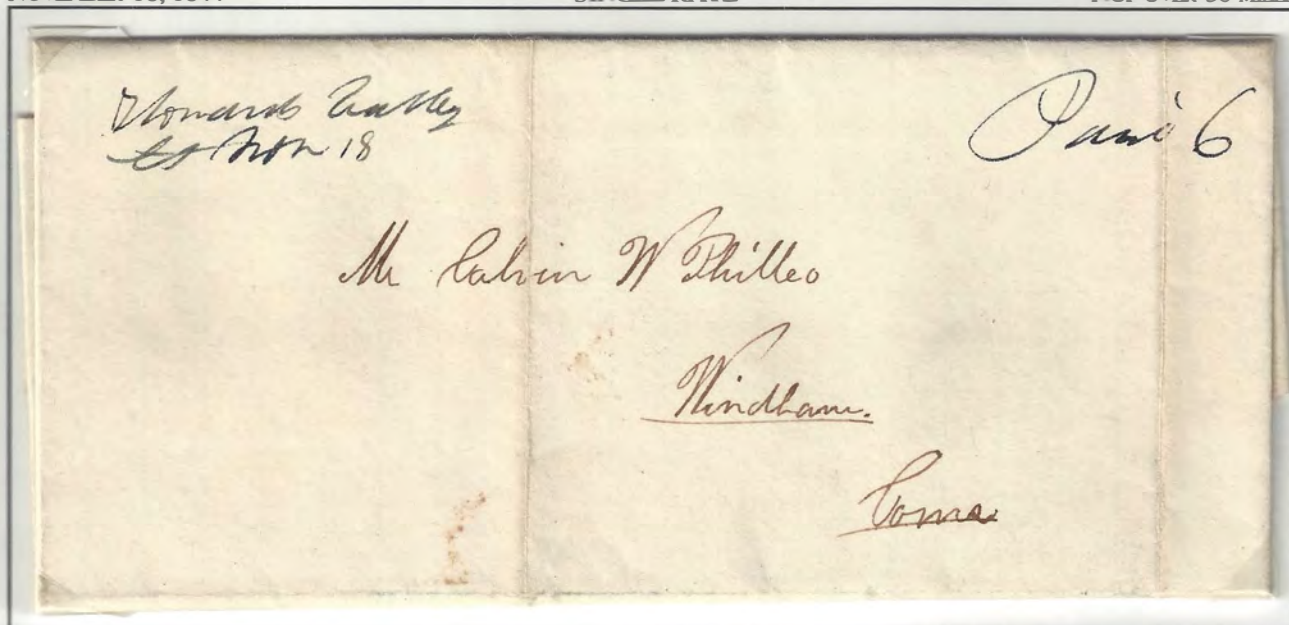 Howards Valley
Ct Nov 18
Paid 6
Mr Calvin W Philleo
Windham.
Conn